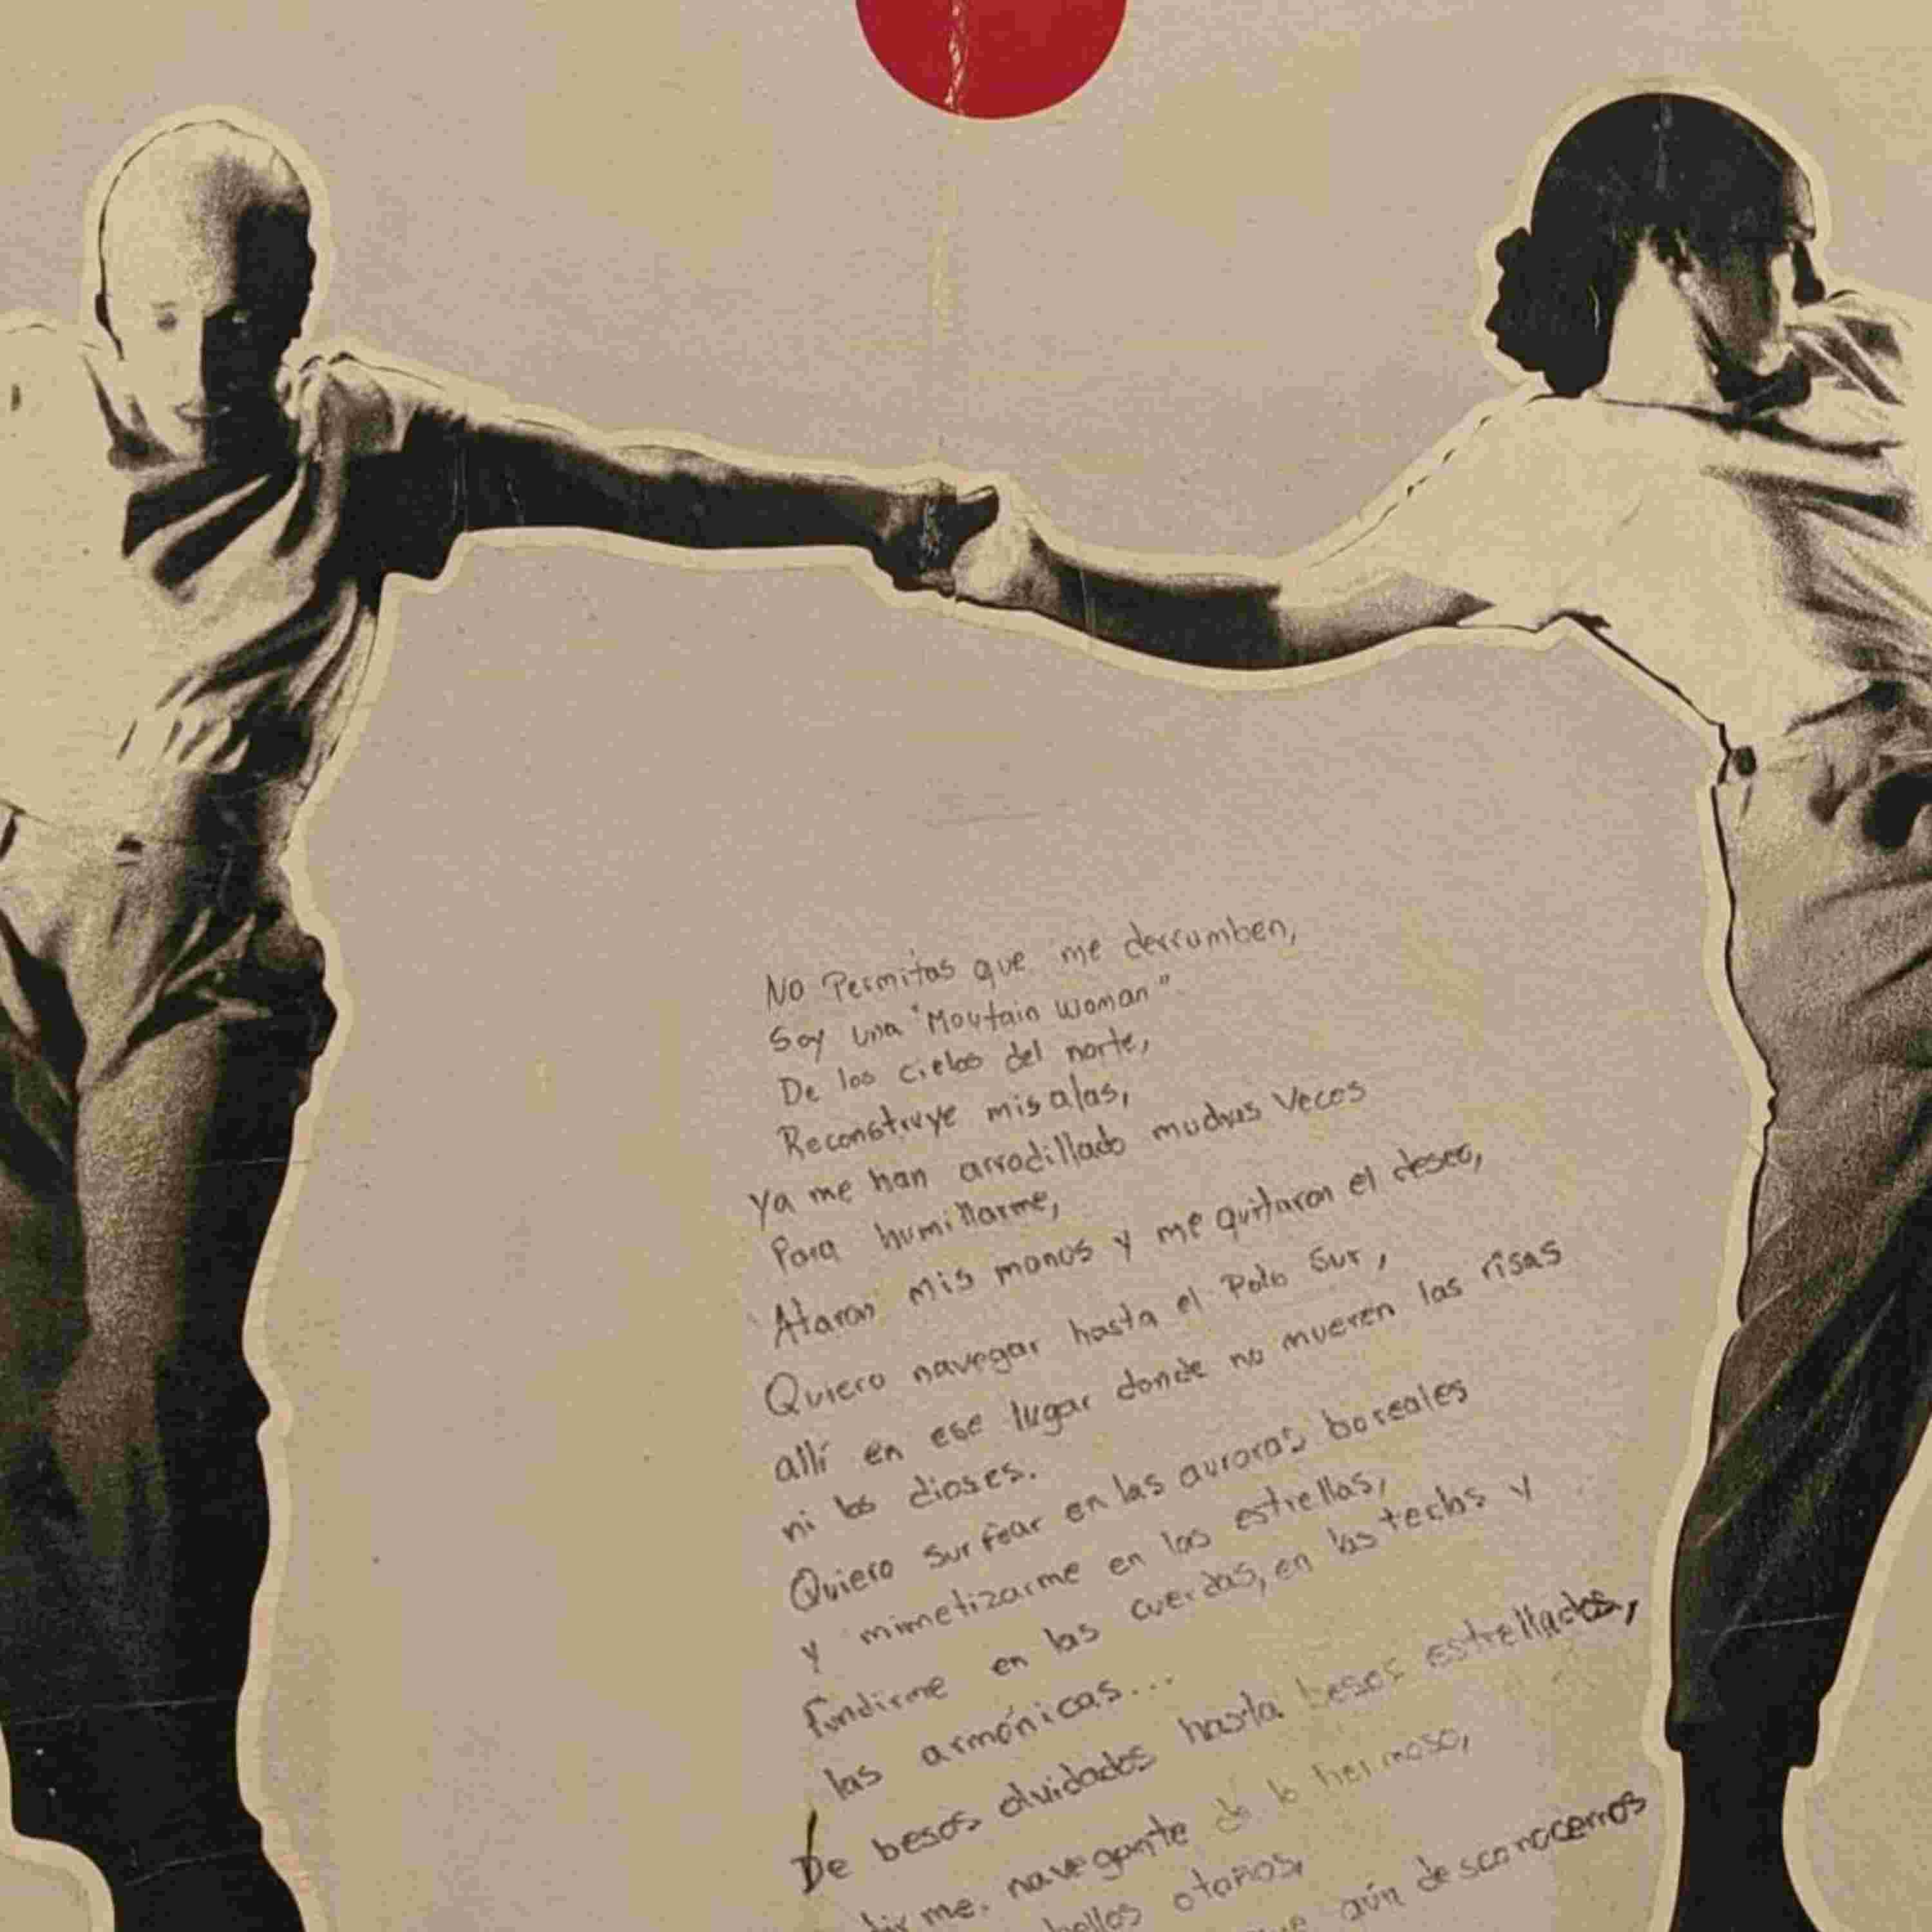 No Permitas que me derrumben,
Soy una "Moutain woman"
De los cielos del norte,
Reconstruye mis alas,
Ya me han arrodillado muchas veces
Para humillarme,
Ataron mis manos y me quitaron el deseo,
Quiero navegar hasta el Polo Sur,
allí en ese lugar donde no mueren las risas
ni los dioses.
Quiero surfear en las auroras boreales
y mimetizarme en las estrellas,
fundirme en las cuerdas, en las teclas y
las armónicas...
De besos olvidados hasta besos estrellados,
me. navegante de lo hermoso,
bellos otoños,
aún desconocemos